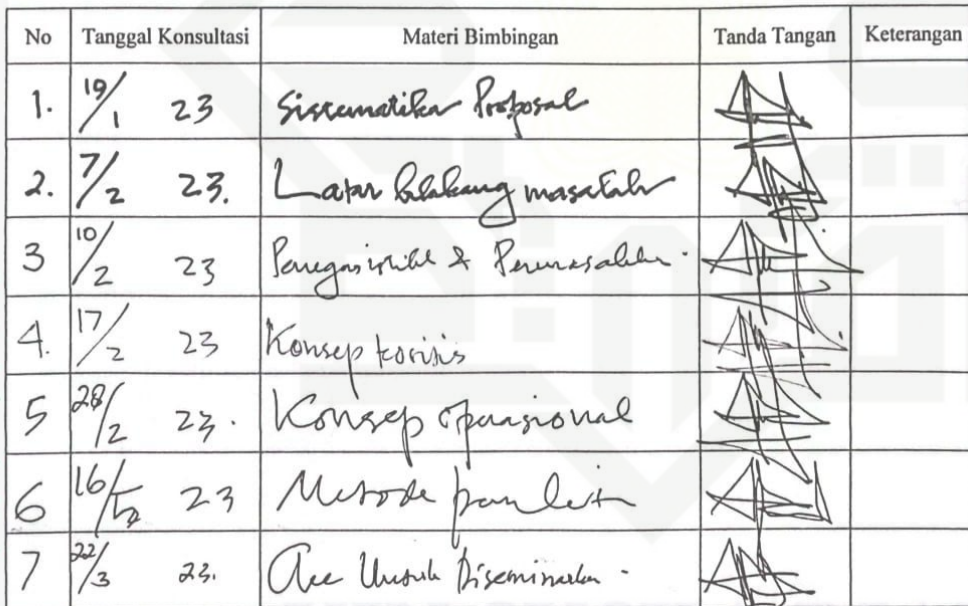 No Tanggal Konsultasi Materi Bimbingan Tanda Tangan Keterangan
1. 19/1 23 Sistematika Proposal
2. 7/2 23. Latar belakang masalah
3 10/2 23 Penegasan istilah & Permasalahan.
4. 17/2 23 Konsep teoritis
5 28/2 23. Konsep operasional
6 16/ 23 Metode
7 22/3 23. Acc Untuk Diseminarkan.